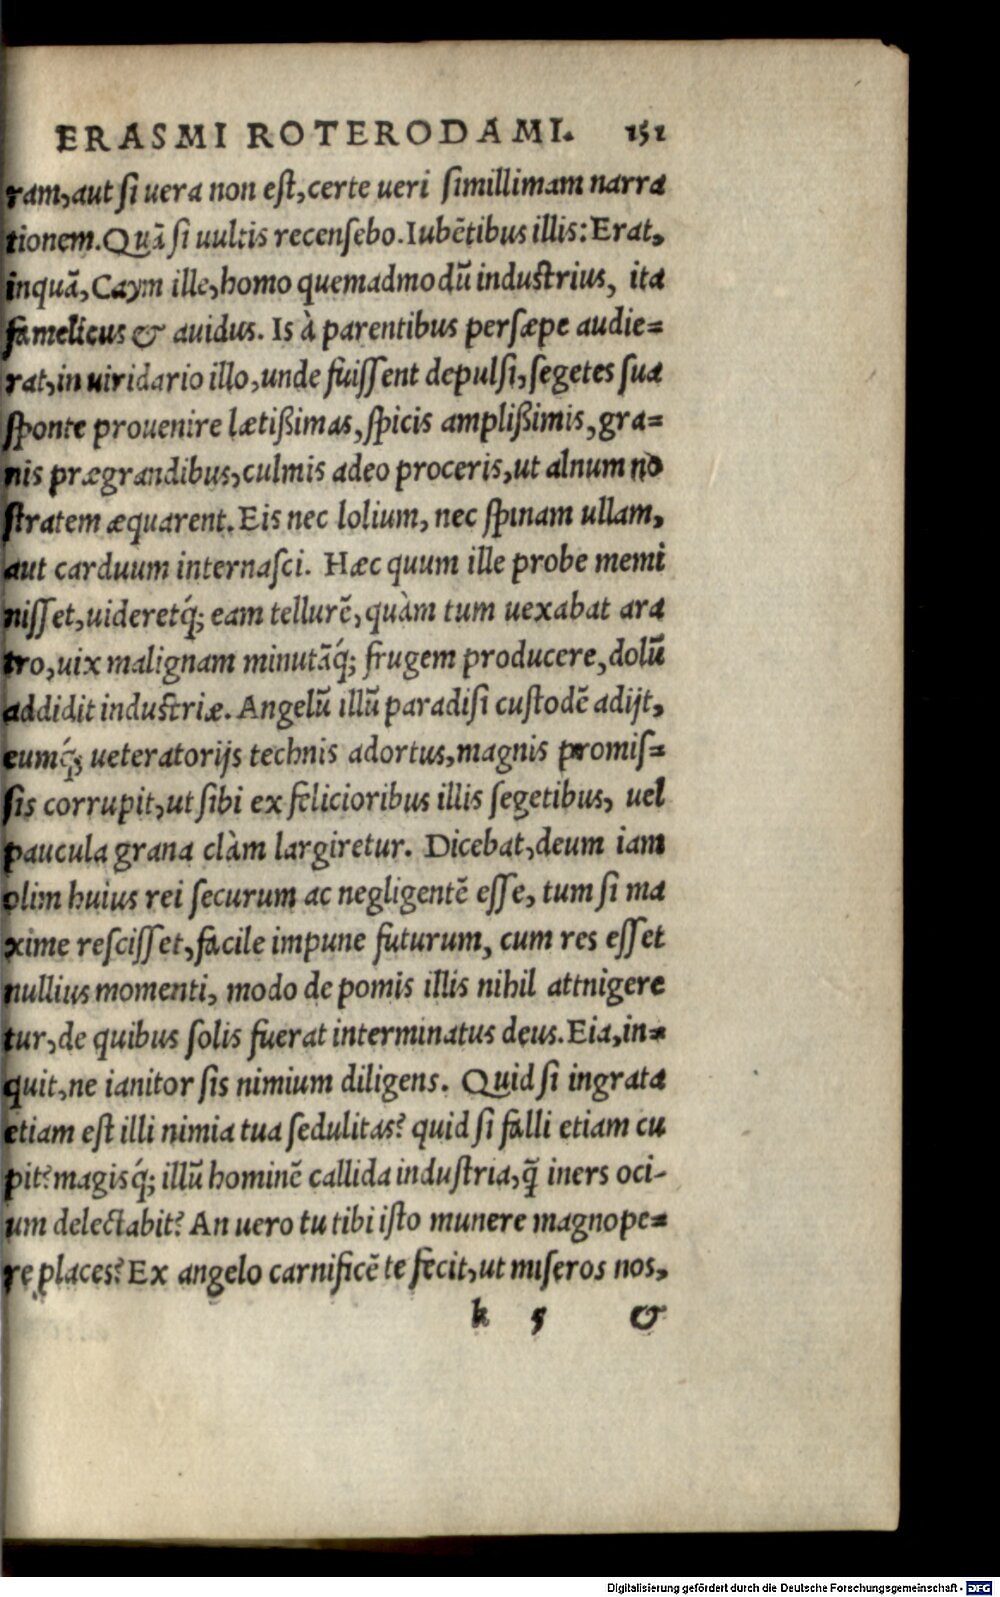 ERASMI ROTERODAMI. 151
ram, aut si uera non est, certe ueri simillimam narra
tionem. Quā si uultis recensebo. Iubētibus illis: Erat,
inquā, Caym ille, homo quemadmodū industrius, ita
famelicus & auidus. Is à parentibus persæpe audie=
rat, in uiridario illo, unde fuissent depulsi, segetes sua
sponte prouenire lætißimas, spicis amplißimis, gra=
nis prægrandibus, culmis adeo proceris, ut alnum no
stratem æquarent. Eis nec lolium, nec spinam ullam,
aut carduum internasci. Hæc quum ille probe memi
nisset, uideretq́; eam tellurē, quàm tum uexabat ara
tro, uix malignam minutāq́; frugem producere, dolū
addidit industriæ. Angelū illū paradisi custodē adijt,
eumq́; ueteratorijs technis adortus, magnis promis=
sis corrupit, ut sibi ex felicioribus illis segetibus, uel
paucula grana clàm largiretur. Dicebat, deum iam
olim huius rei securum ac negligentē esse, tum si ma
xime rescisset, facile impune futurum, cum res esset
nullius momenti, modo de pomis illis nihil attnigere
tur, de quibus solis fuerat interminatus deus. Eia, in=
quit, ne ianitor sis nimium diligens. Quid si ingrata
etiam est illi nimia tua sedulitas? quid si falli etiam cu
pit? magisq́; illū hominē callida industria, q̄̃ iners oci-
um delectabit? An uero tu tibi isto munere magnope=
re places? Ex angelo carnificē te fecit, ut miseros nos,
k 5 &
Digitalisierung gefördert durch die Deutsche Forschungsgemeinschaft - DFG